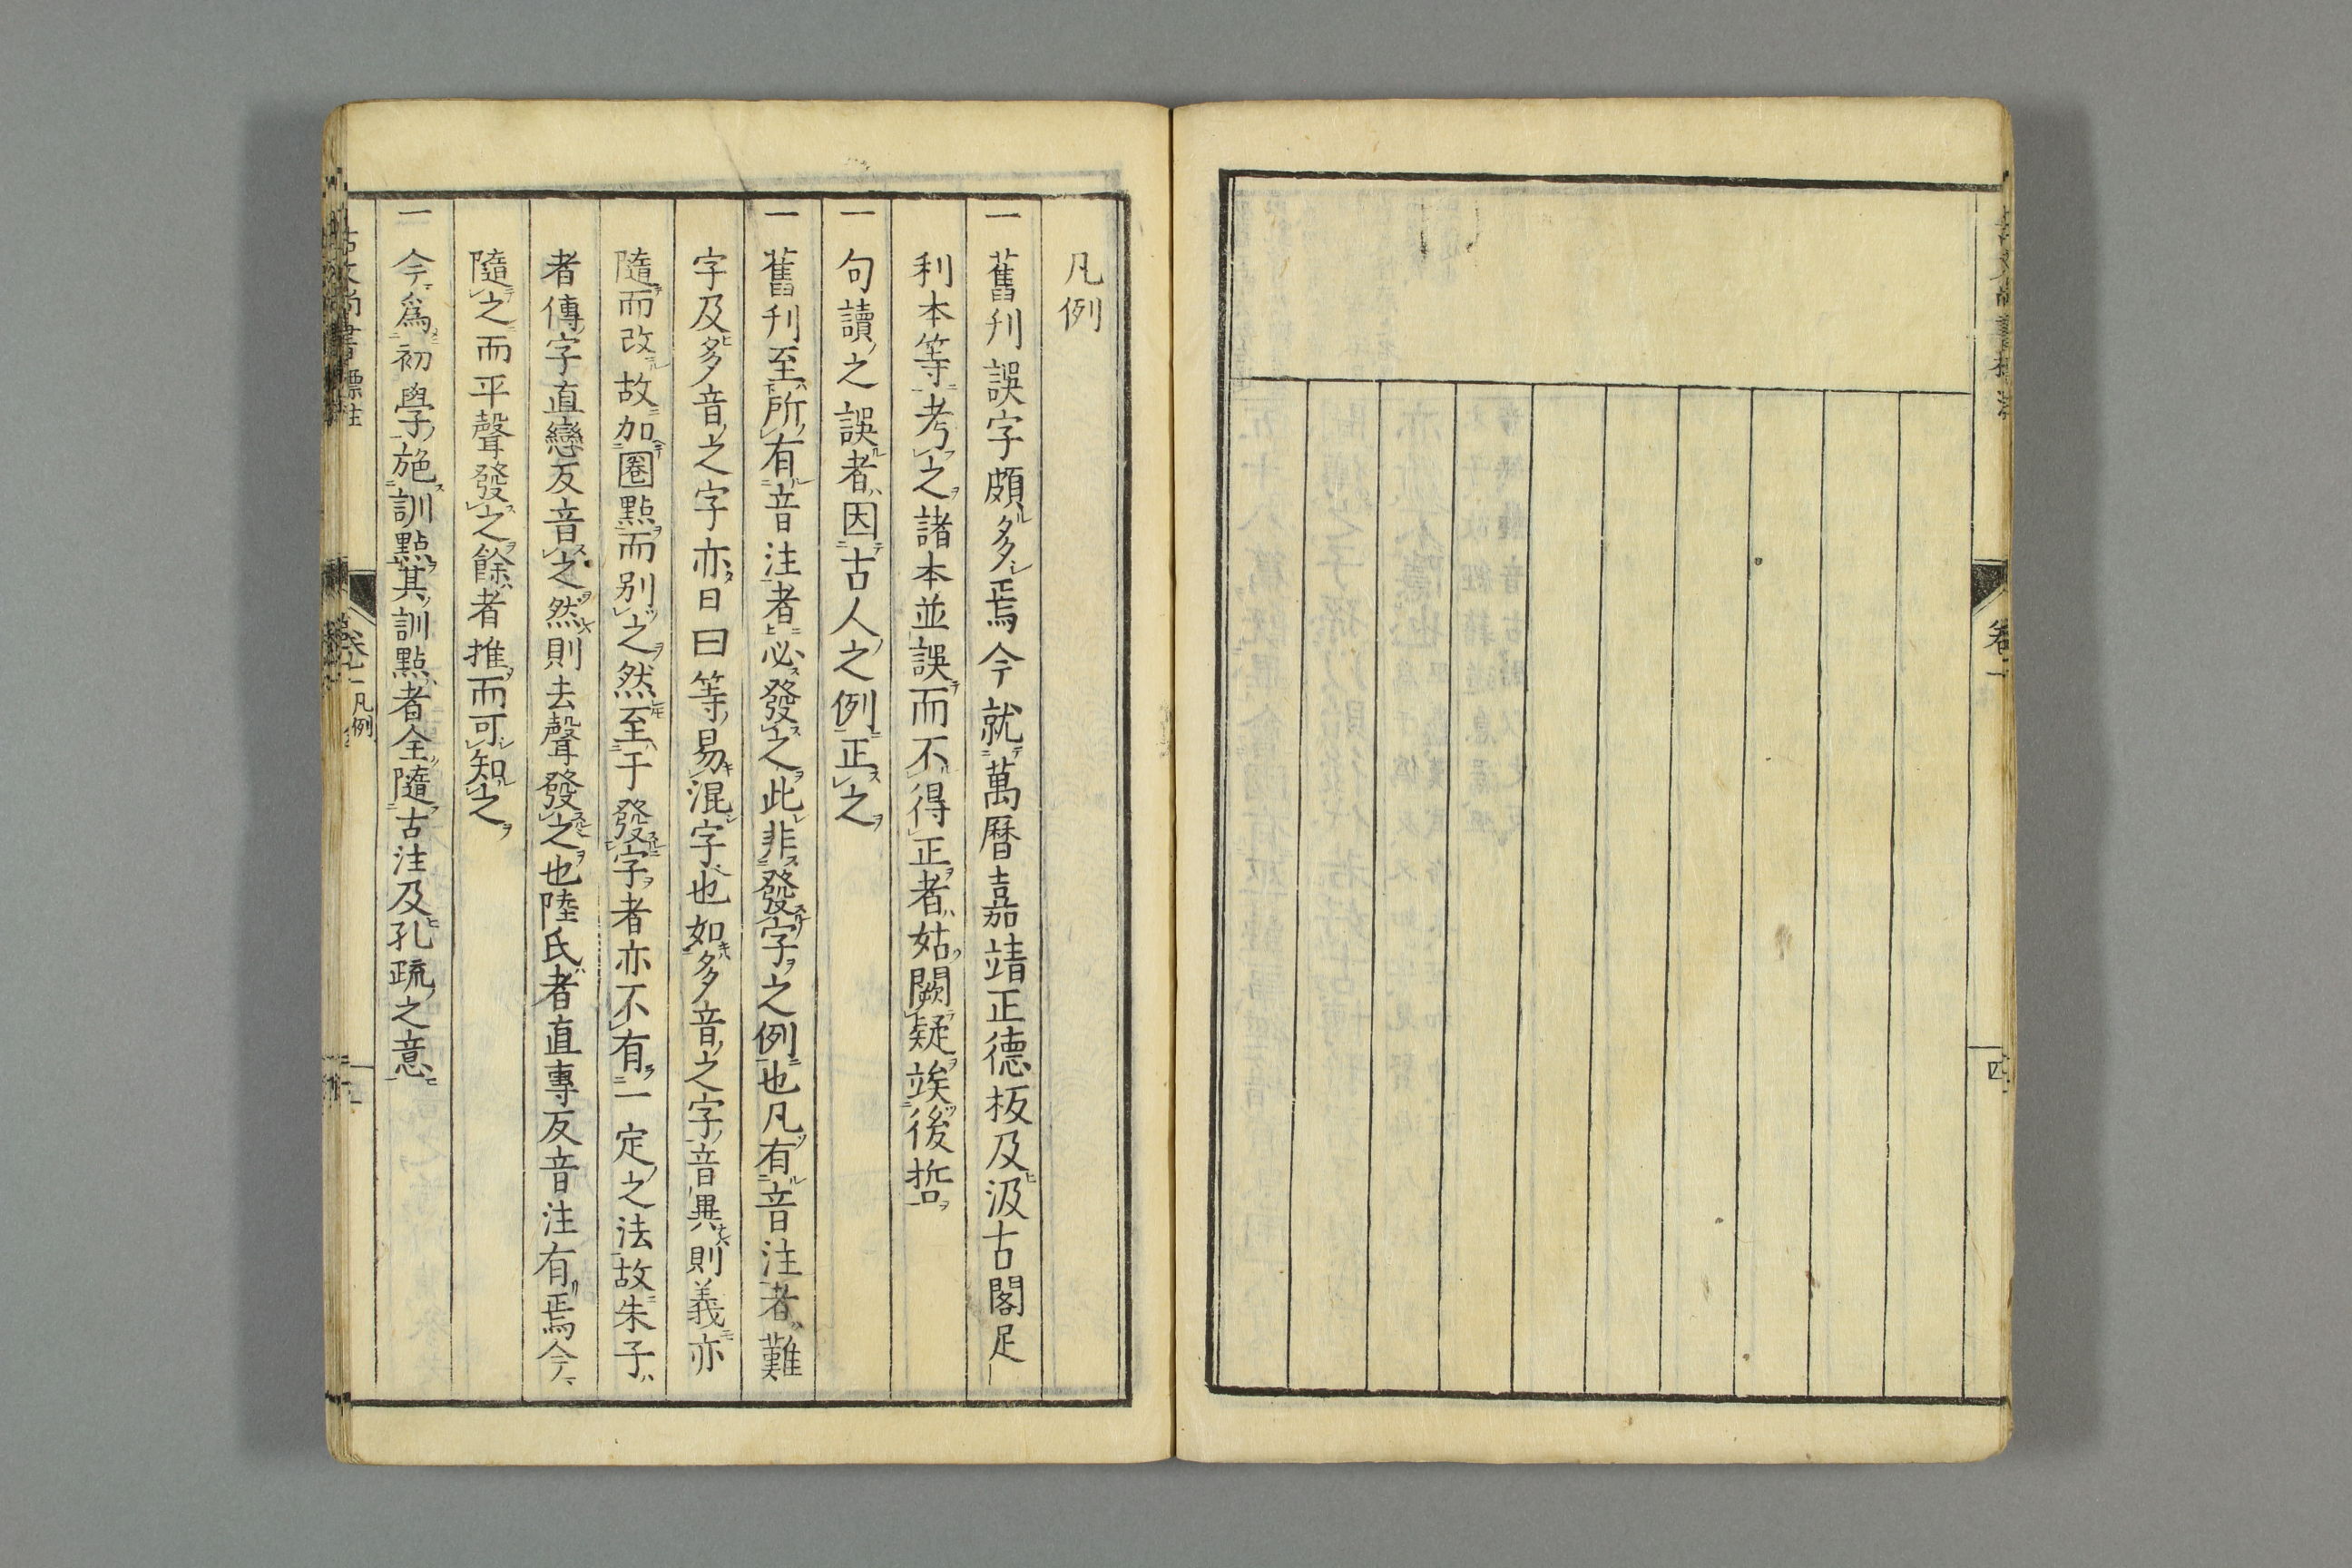 凡例
一 舊刊誤字頗多焉今就萬曆嘉靖正德板及汲古閣足
利本等考之諸本並誤而不得正者姑闕疑竢後哲
一 句讀之誤者因古人之例正之
一 舊刊至所有音注者必發之此非發字之例也凡有音注者難
字及多音之字亦日曰等易混字也如多音之字音異則義亦
隨而改故加圈點而別之然至于發字者亦不有一定之法故朱子
者傳字直戀反音之然則去聲發之也陸氏者直專反音注有焉今
隨之而平聲發之餘者推而可知之
一 今爲初學施訓點其訓點者全隨古注及孔疏之意
古文尚書標註
凡例